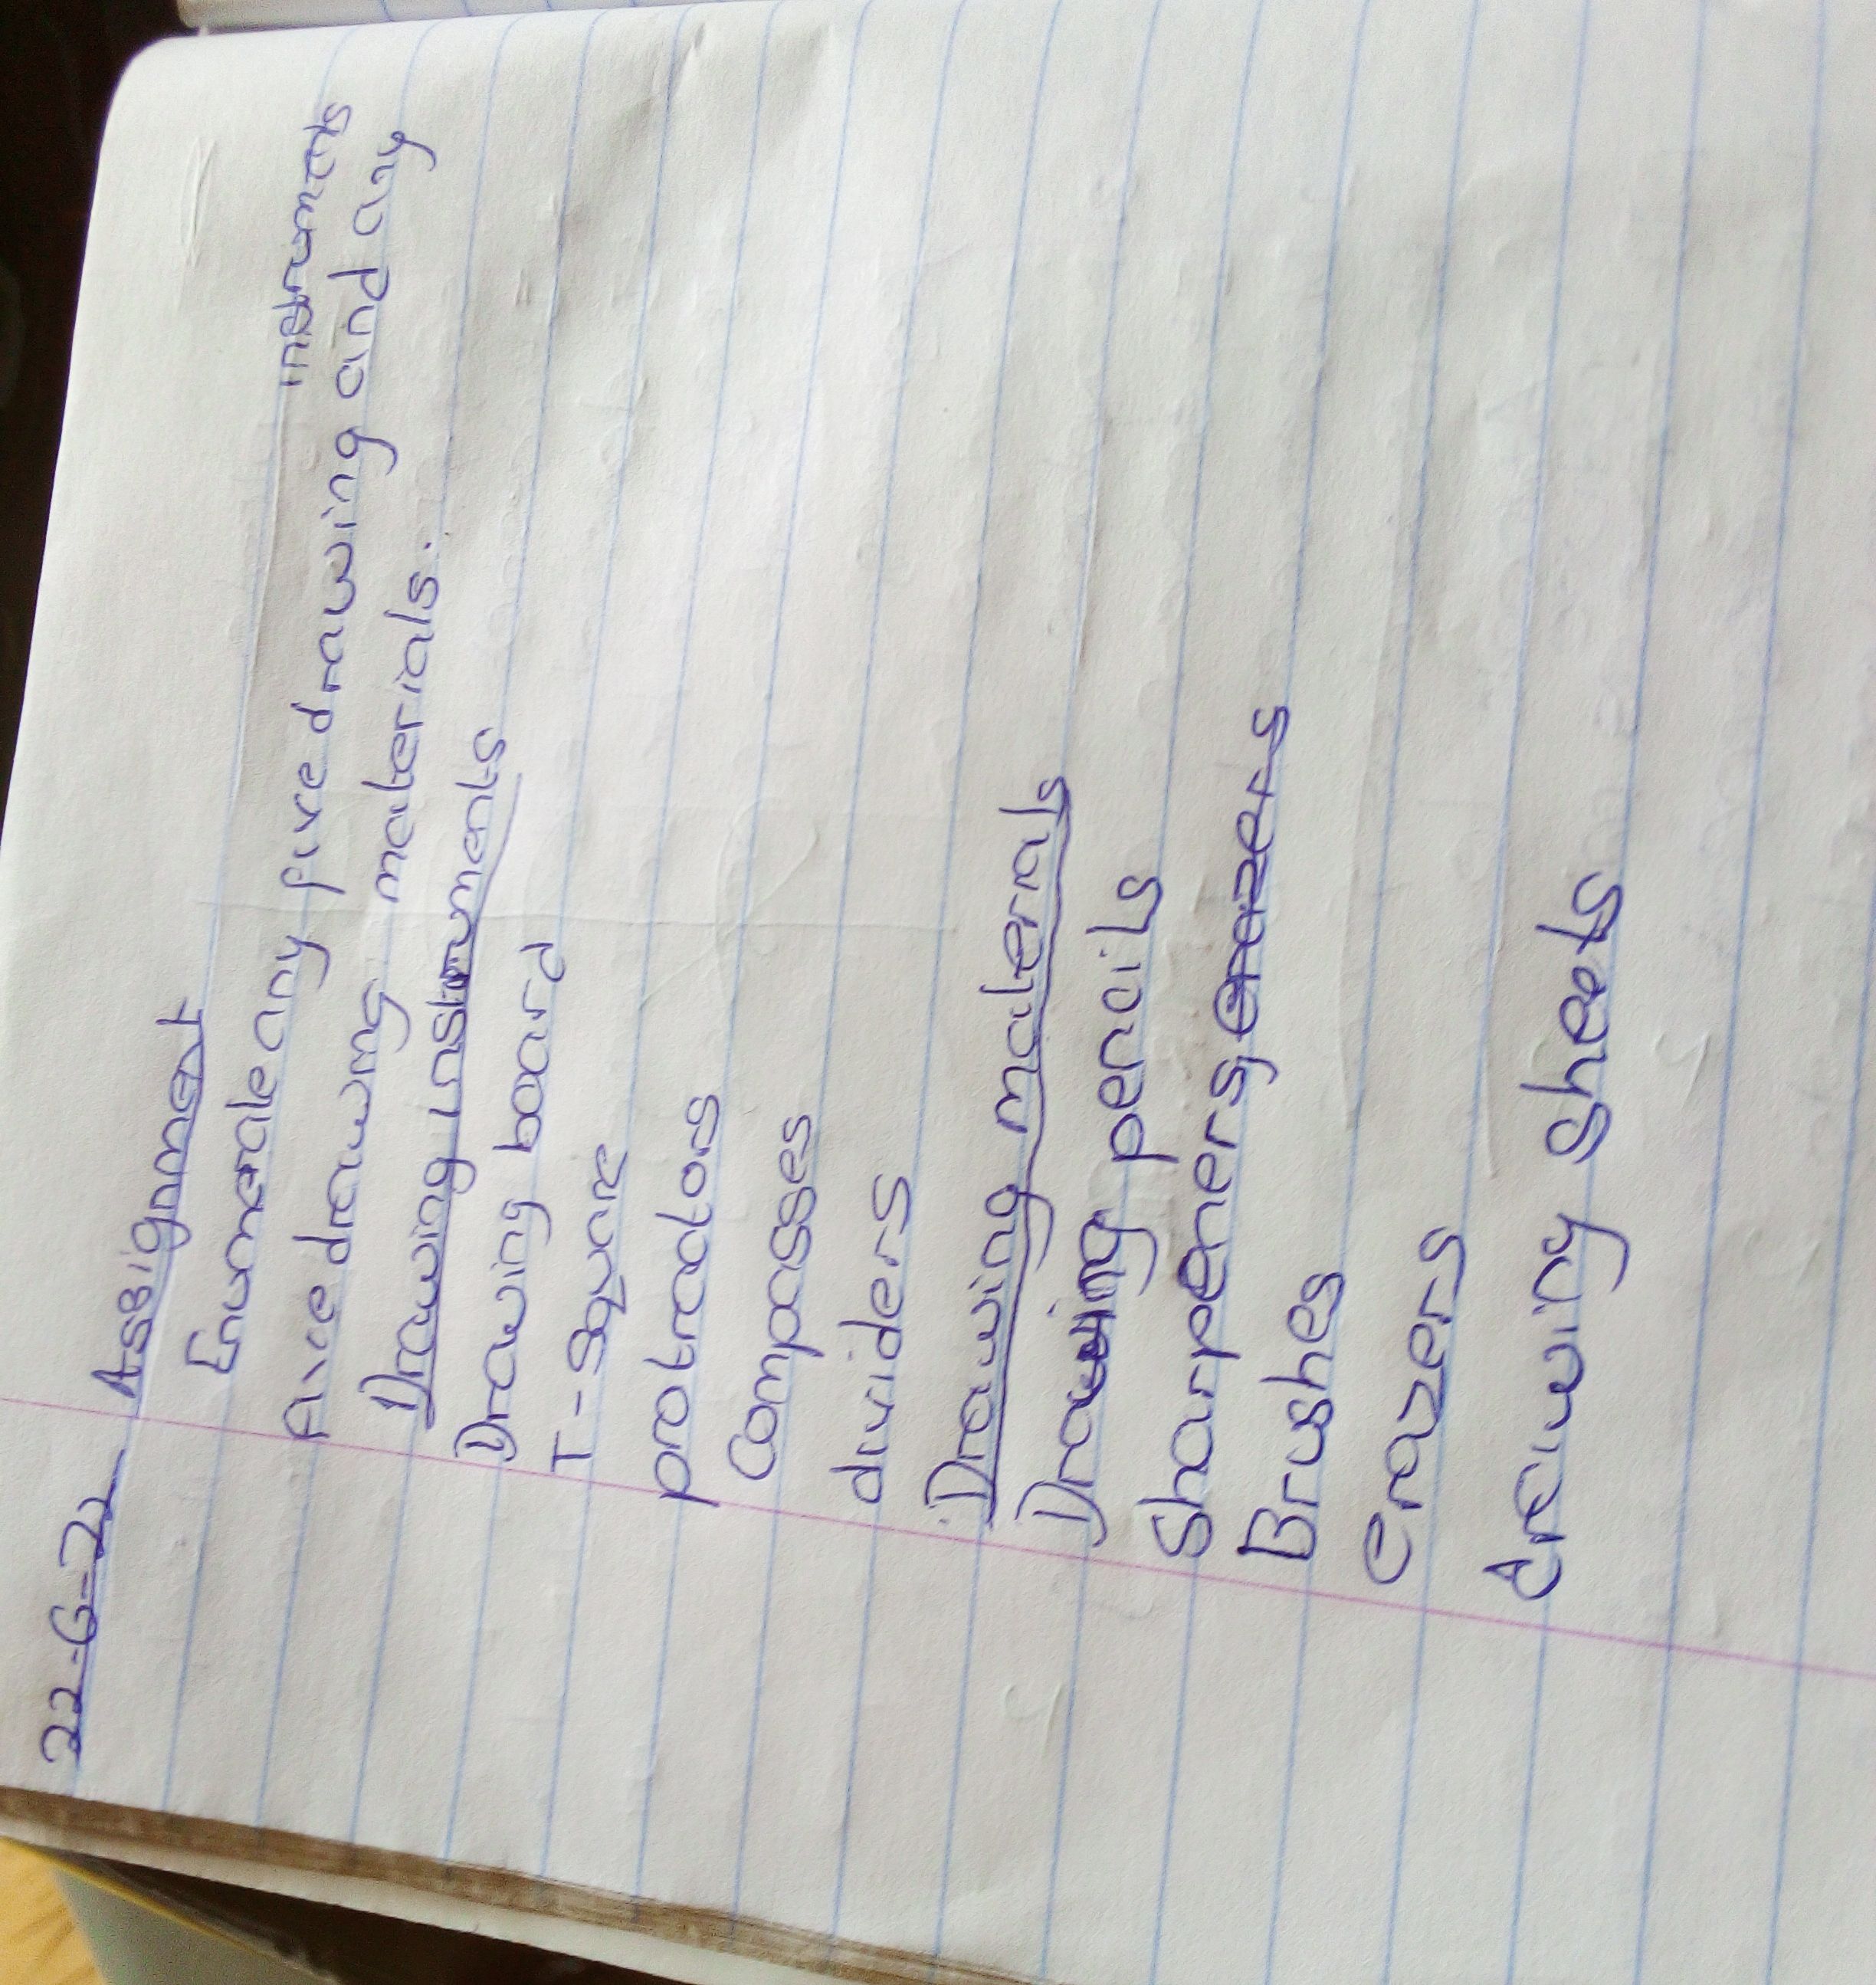 22-6-22 Assignment
Enumerate any five drawing instruments and any
five drawing materials.
Drawing instruments
Drawing board
T-Square
protractors
Compasses
dividers
Drawing materials
Drawing pencils
Sharpeners erazers
Brushes
erazers
drawing sheets